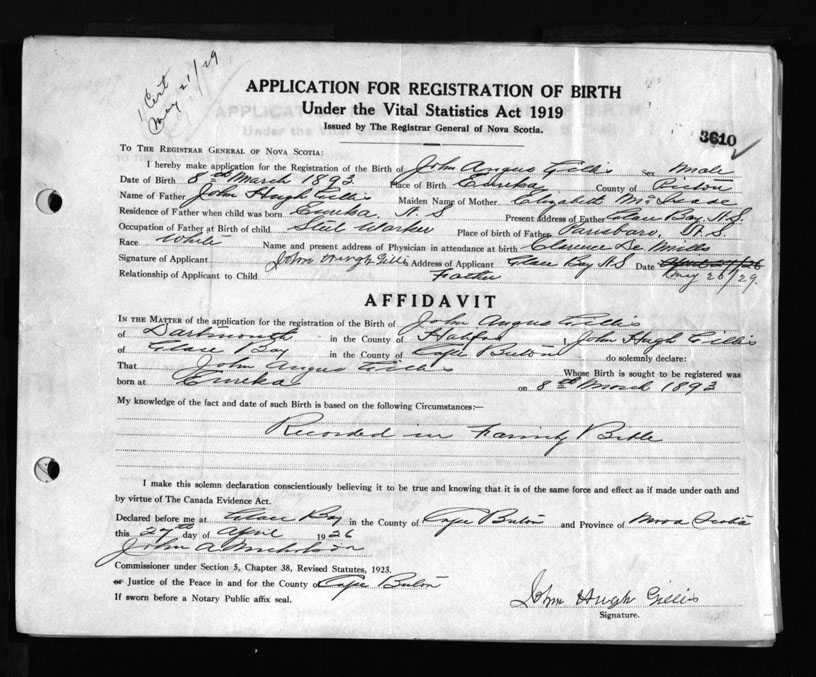 1 Cert
May 21/29
APPLICATION FOR REGISTRATION OF BIRTH
Under the Vital Statistics Act 1919
Issued by The Registrar General of Nova Scotia.
3610
TO THE REGISTRAR GENERAL OF NOVA SCOTIA:
I hereby make application for the Registration of the Birth of John Angus Gillis Sex Male
Date of Birth 8th March 1893 Place of Birth Eureka County of Pictou
Name of Father John Hugh Gillis Maiden Name of Mother Elizabeth McIsaac
Residence of Father when child was born Eureka, N.S Present Address of Father Glace Bay, N.S.
Occupation of Father at Birth of child Steel Worker Place of birth of Father Parrsboro, N.S.
Race White Name and present address of Physician in attendance at birth Clarence
Signature of Applicant John Hugh Gillis Address of Applicant Glace Bay N.S Date
Relationship of Applicant to Child Father
AFFIDAVIT
IN THE MATTER of the application for the registration of the Birth of John Angus Gillis
of Dartmouth in the County of Halifax I, John Hugh Gillis
of Glace Bay in the County of Cape Breton do solemnly declare:
That John Angus Gillis Whose Birth is sought to be registered was
born at Eureka on 8th March 1893
My knowledge of the fact and date of such Birth is based on the following Circumstances:—
Recorded in Family Bible
I make this solemn declaration conscientiously believing it to be true and knowing that it is of the same force and effect as if made under oath and
by virtue of The Canada Evidence Act.
Declared before me at Glace Bay in the County of Cape Breton and Province of Nova Scotia
this 27th day of April 1926
John A Nicholson
Commissioner under Section 5, Chapter 38, Revised Statutes, 1923.
or Justice of the Peace in and for the County of Cape Breton
If sworn before a Notary Public affix seal.
John Hugh Gillis
Signature.